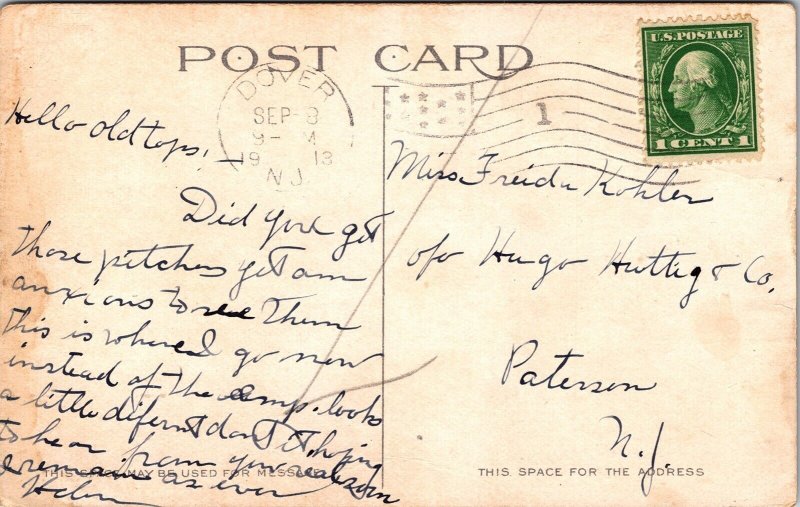 POST CARD
DOVER
SEP -8
9- M
19 13
N.J.
1
U.S. POSTAGE
1 CENT 1
Hello old tops, —
Did you get
those pitchers yet am
anxious to see them
this is where I go now
instead of the camp. looks
a little difernt dont it hoping
to hear from you real soon
I remain as ever
Helen
Miss Freida Kohler
c/o Hugo Huttig & Co,
Paterson
N.J.
THIS SPACE MAY BE USED FOR MESSAGE
THIS SPACE FOR THE ADDRESS